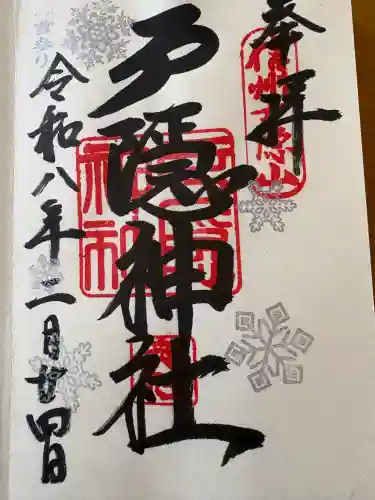 奉拝
信州戸隠山
戸隠神社
令和八年二月廿四日
雪参り